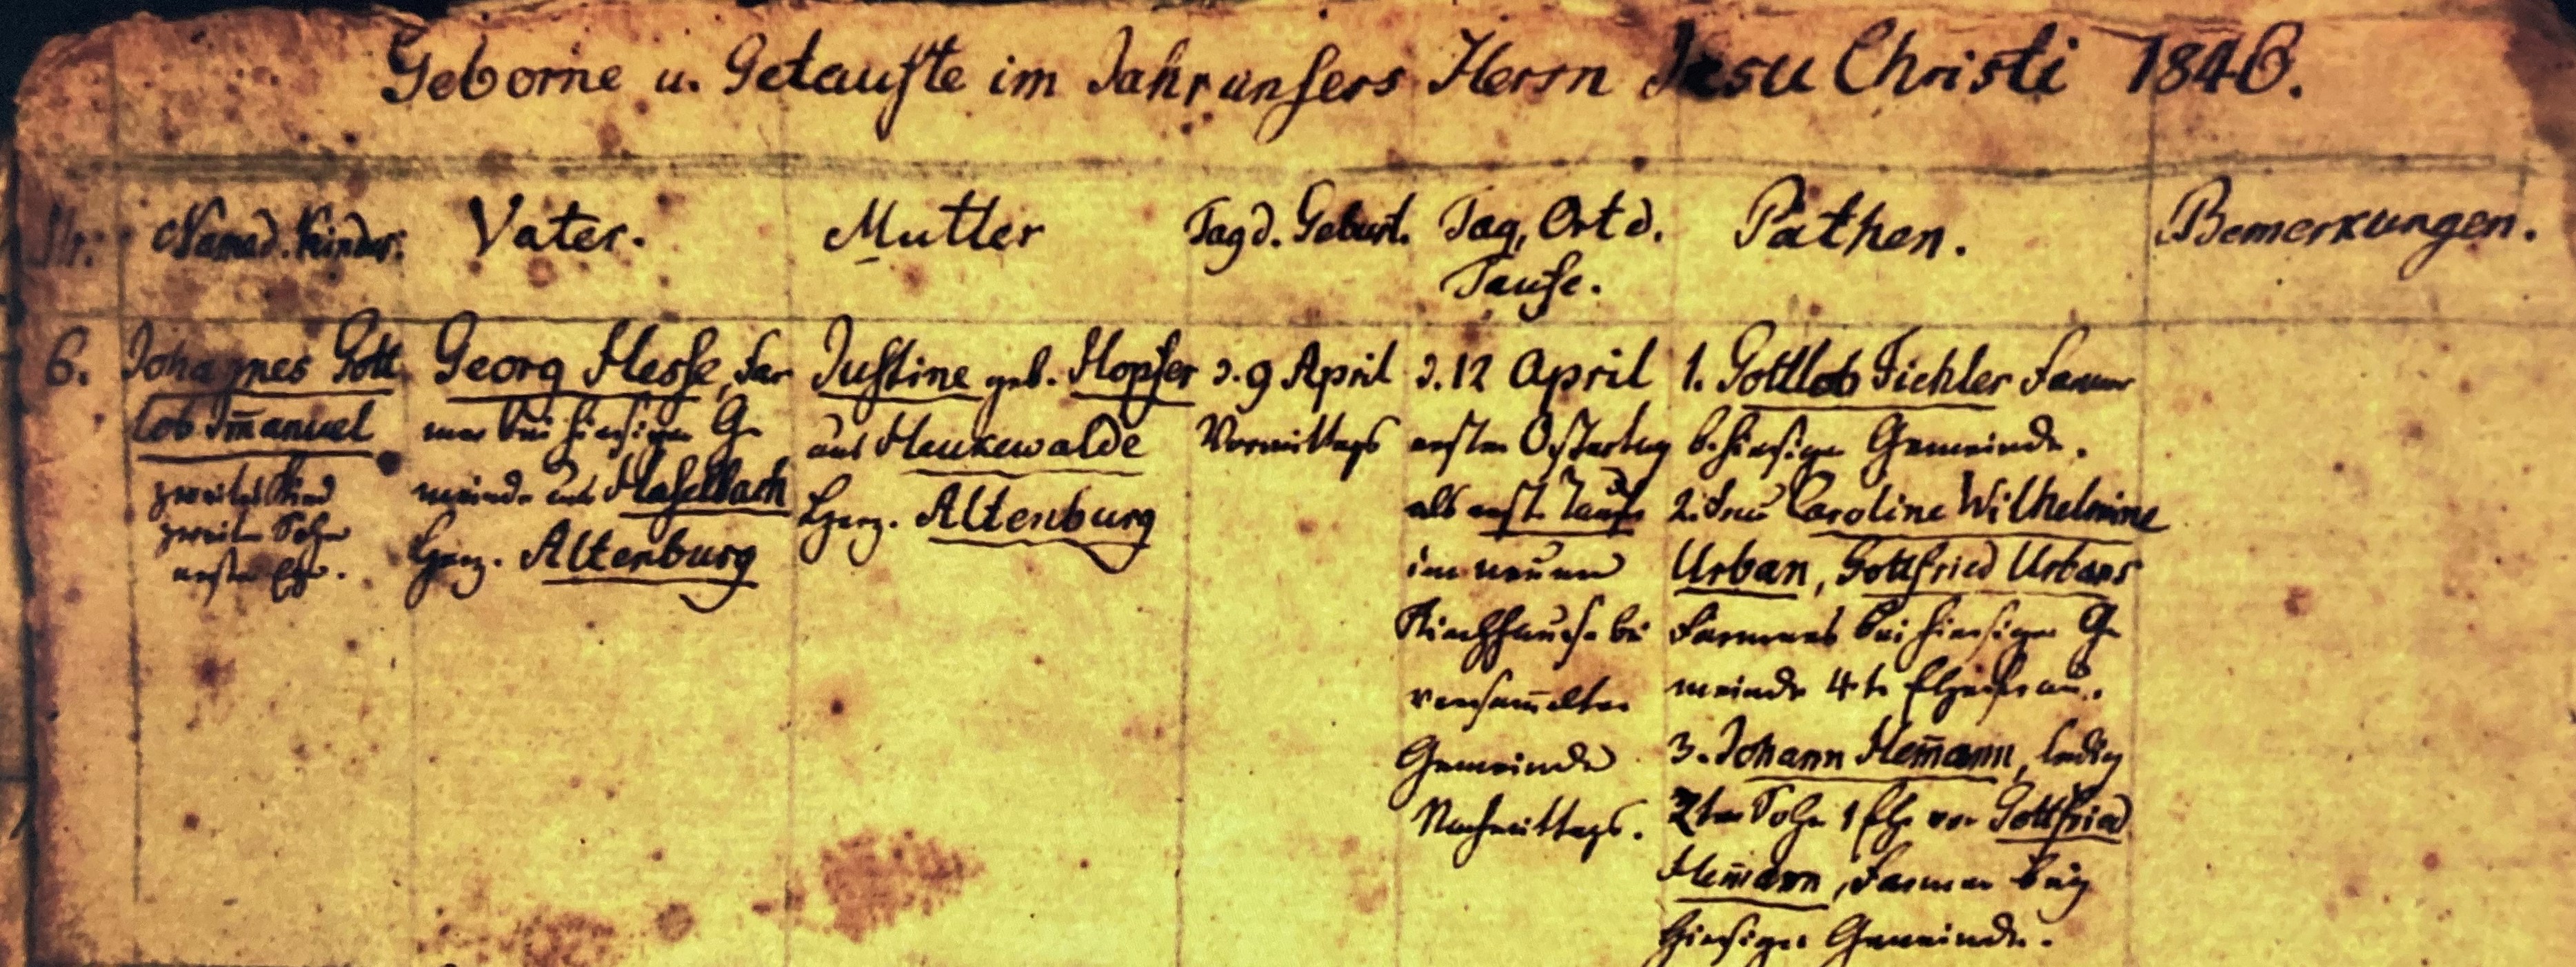 Geborne u. Getaufte im Jahr unsers Herrn Jesu Christi 1846.
Nr.
Name d. Kindes.
Vater.
Mutter
Tag d. Geburt.
Tag, Ort d.
Taufe.
Pathen.
Bemerkungen.
6.
Johannes Gott
lob Im̅anuel
zweites Kind
zweiter Sohn
erster Ehe.
Georg Hesse, Far
mer bei hiesiger Ge
meinde aus Haselbach
Herz. Altenburg
Justine geb. Hopfer
aus Heukewalde
Herz. Altenburg
d. 9 April
Vormittags
d. 12 April
ersten Ostertag
als erste Taufe
im neuen
Kirchhause bei
versam̅elter
Gemeinde
Nachmittags.
1. Gottlob Fichler Farmer
b. hiesiger Gemeinde.
2. Frau Caroline Wilhelmine
Urban, Gottfried Urbans
Farmers bei hiesiger Ge
meinde 4te Ehefrau.
3. Johann Hem̅ann, ledig
2ter Sohn 1 Ehe von Gottfried
Hem̅ann, Farmer bei
hiesiger Gemeinde.